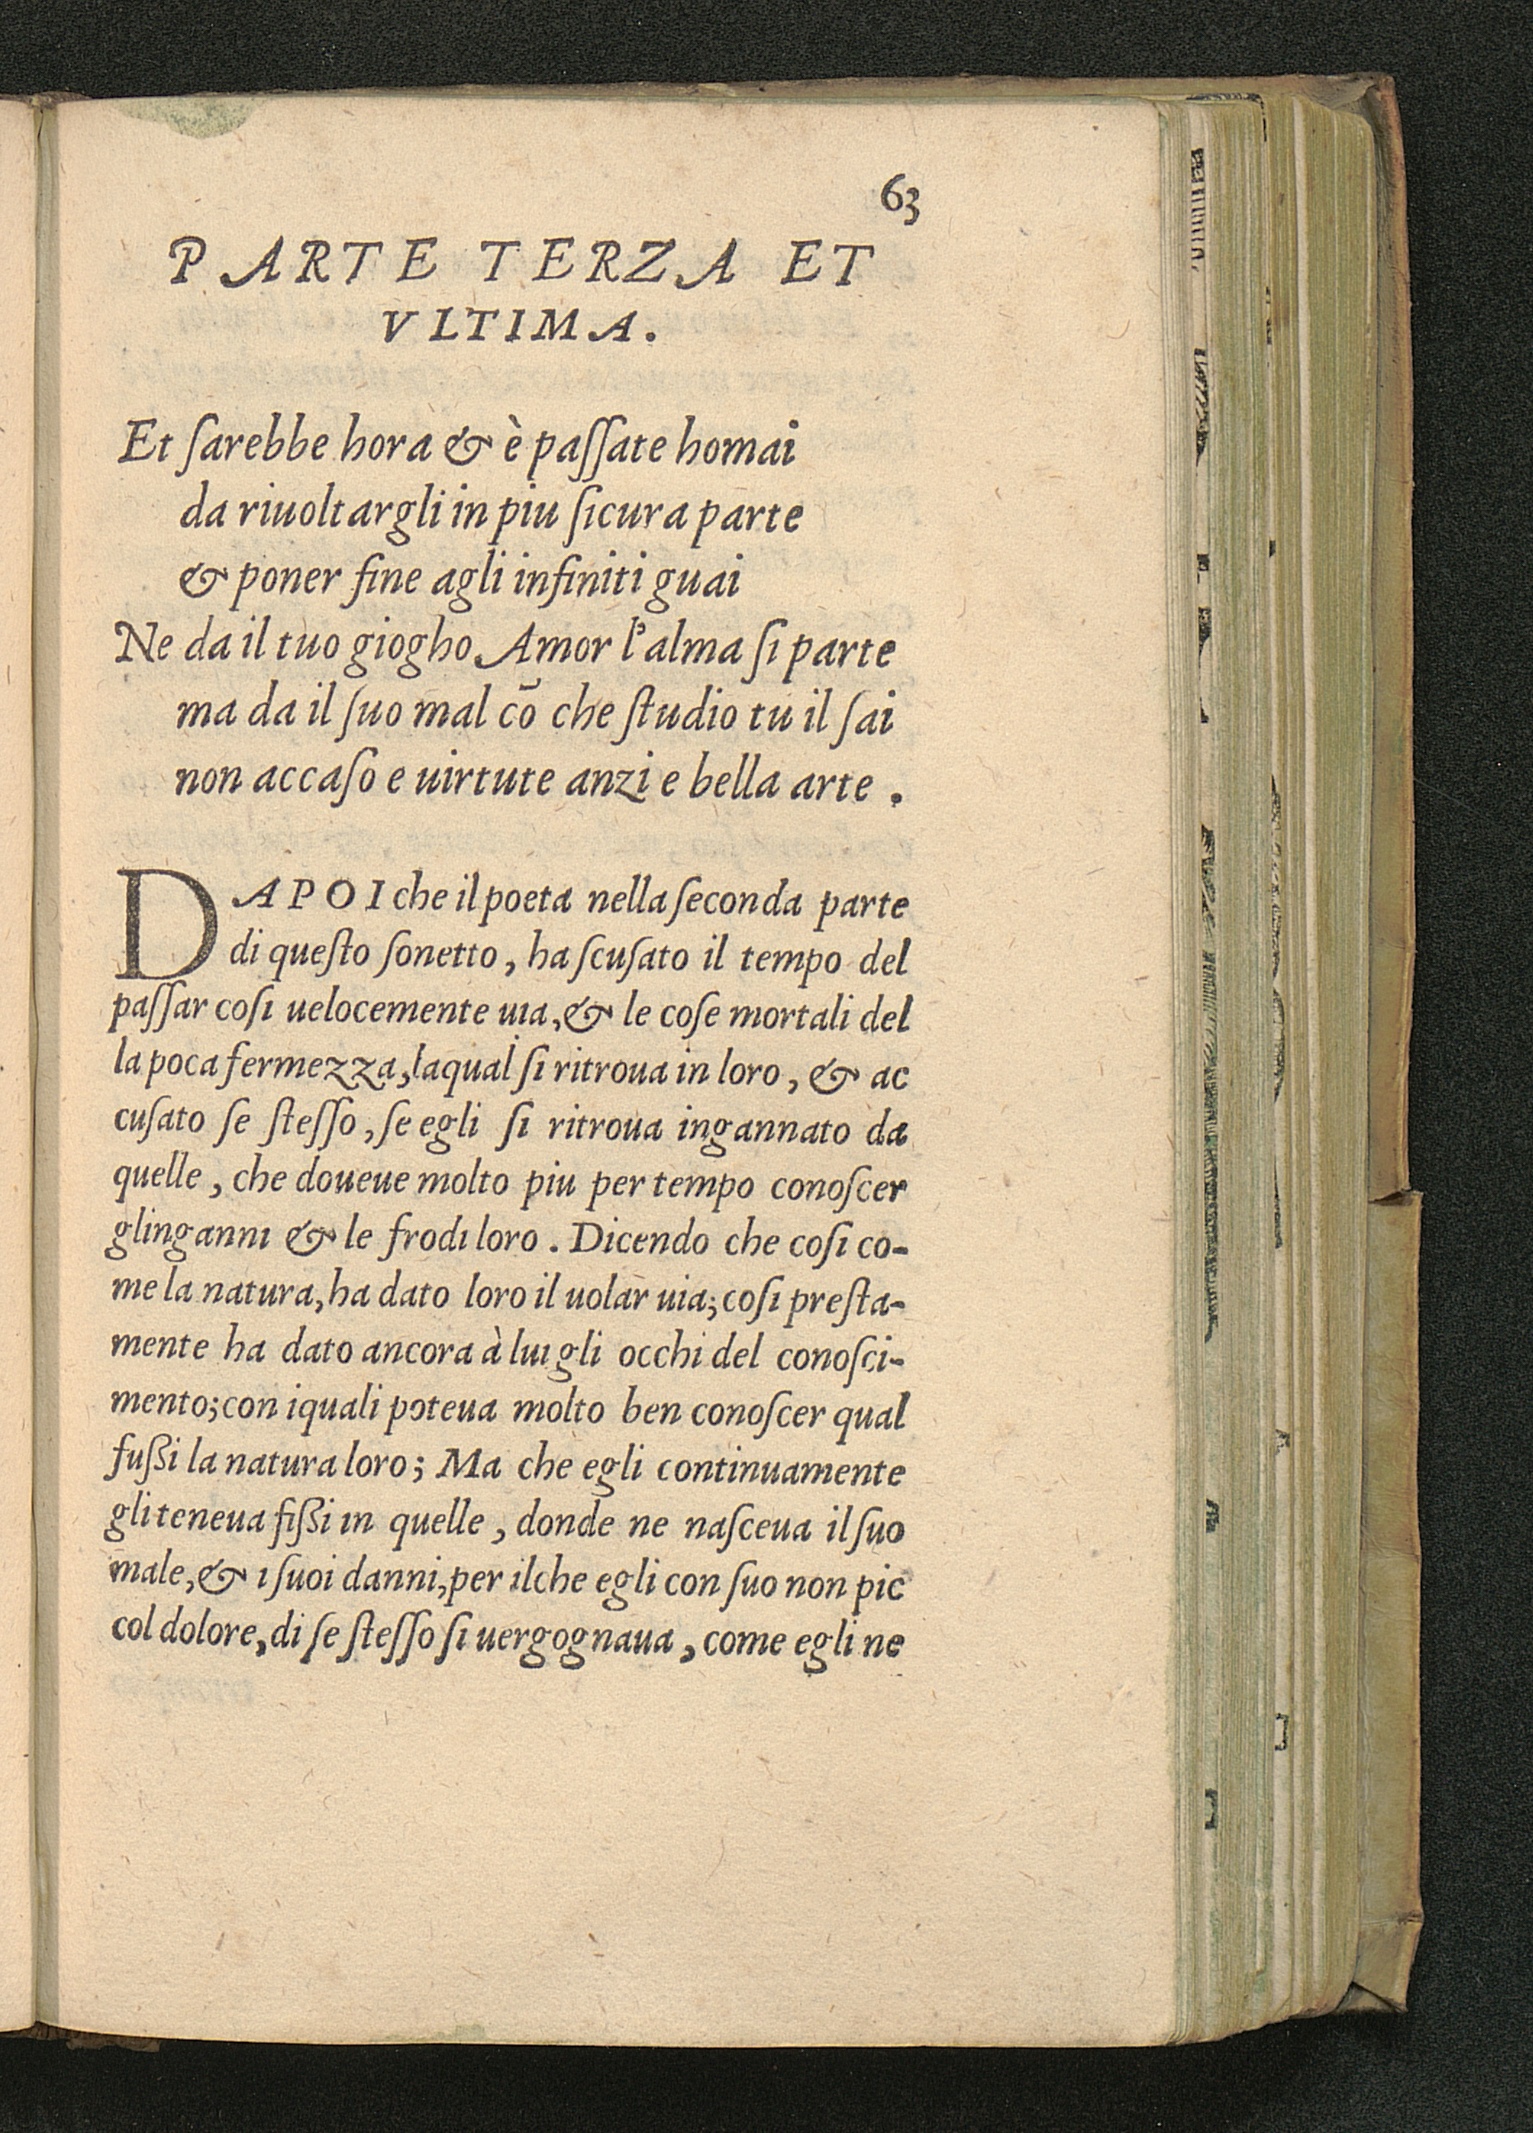 63
PARTE TERZA ET
VLTIMA.
Et ſarebbe hora & è paſſate homai
da riuoltargli in piu ſicura parte
& poner fine agli infiniti guai
Ne da il tuo giogho Amor l'alma ſi parte
ma da il ſuo mal cō che ſtudio tu il ſai
non accaſo e uirtute anzi e bella arte .
DAPOI che il poeta nella ſeconda parte
di queſto ſonetto, ha scuſato il tempo del
paſſar coſi uelocemente uia, & le coſe mortali del
la poca fermezza, laqual ſi ritroua in loro, & ac
cuſato ſe ſteſſo, ſe egli ſi ritroua ingannato da
quelle, che doueue molto piu per tempo conoſcer
glinganni & le frodi loro. Dicendo che coſi co-
me la natura, ha dato loro il uolar uia; coſi preſta-
mente ha dato ancora à lui gli occhi del conoſci-
mento; con iquali poteua molto ben conoſcer qual
fußi la natura loro; Ma che egli continuamente
gli teneua fißi in quelle, donde ne naſceua il ſuo
male, & i ſuoi danni, per ilche egli con ſuo non pic
col dolore, di ſe ſteſſo ſi uergognaua, come egli ne